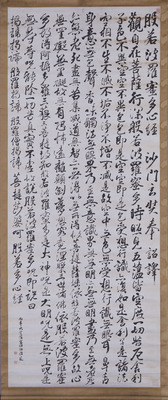 般若波羅蜜多心經 沙門玄奘奉 詔譯
觀自在菩薩行深般若波羅蜜多時照見五蘊皆空度一切苦厄舍利
子色不異空空不異色色即是空空即是色受想行識亦復如是舍利子是諸法
空相不生不滅不垢不淨不增不減是故空中無色無受想行識無眼耳鼻舌
身意無色聲香味觸法無眼界乃至無意識界無無明亦無無明盡乃至無老死
亦無老死盡無苦集滅道無智亦無得以無所得故菩提薩埵依般若波羅蜜多故心
無罣礙無罣礙故無有恐怖遠離顛倒夢想究竟涅槃三世諸佛依般若波羅蜜
多故得阿耨多羅三藐三菩提故知般若波羅蜜多是大神咒是大明咒是無上咒
是無等等咒能除一切苦真實不虛故說般若波羅蜜多咒即說咒曰
揭諦揭諦 般羅揭諦 般羅僧揭諦 菩提莎婆訶 般若多心經